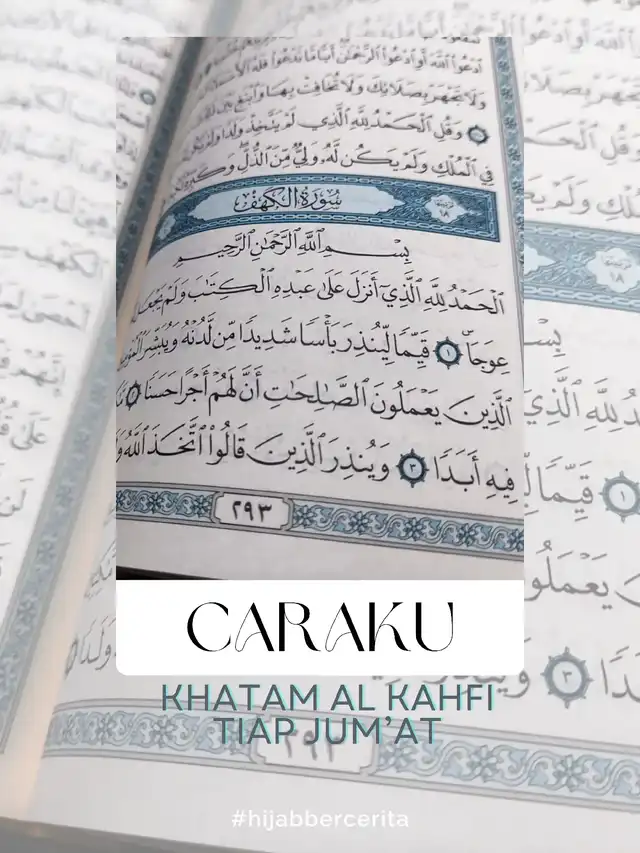 ادْعُوا۟ اللَّهَ أَوِ ادْعُوا۟ الرَّحْمَٰنَ أَيًّا مَّا تَدْعُوا۟ فَلَهُ الْأَسْمَاءُ
وَلَا تَجْهَرْ بِصَلَاتِكَ وَلَا تُخَافِتْ بِهَا وَابْتَغِ بَيْنَ
وَقُلِ الْحَمْدُ لِلَّهِ الَّذِي لَمْ يَتَّخِذْ وَلَدًا وَلَمْ يَكُن
فِي الْمُلْكِ وَلَمْ يَكُن لَّهُ وَلِيٌّ مِّنَ الذُّلِّ وَكَبِّرْهُ
سُورَةُ الْكَهْفِ
بِسْمِ اللَّهِ الرَّحْمَٰنِ الرَّحِيمِ
الْحَمْدُ لِلَّهِ الَّذِي أَنزَلَ عَلَىٰ عَبْدِهِ الْكِتَابَ وَلَمْ يَجْعَل
عِوَجَا ١ قَيِّمًا لِّيُنذِرَ بَأْسًا شَدِيدًا مِّن لَّدُنْهُ وَيُبَشِّرَ
الَّذِينَ يَعْمَلُونَ الصَّالِحَاتِ أَنَّ لَهُمْ أَجْرًا حَسَنًا ٢
فِيهِ أَبَدًا ٣ وَيُنذِرَ الَّذِينَ قَالُوا۟ اتَّخَذَ اللَّهُ
٢٩٣
CARAKU
KHATAM AL KAHFI
TIAP JUM'AT
#hijabbercerita